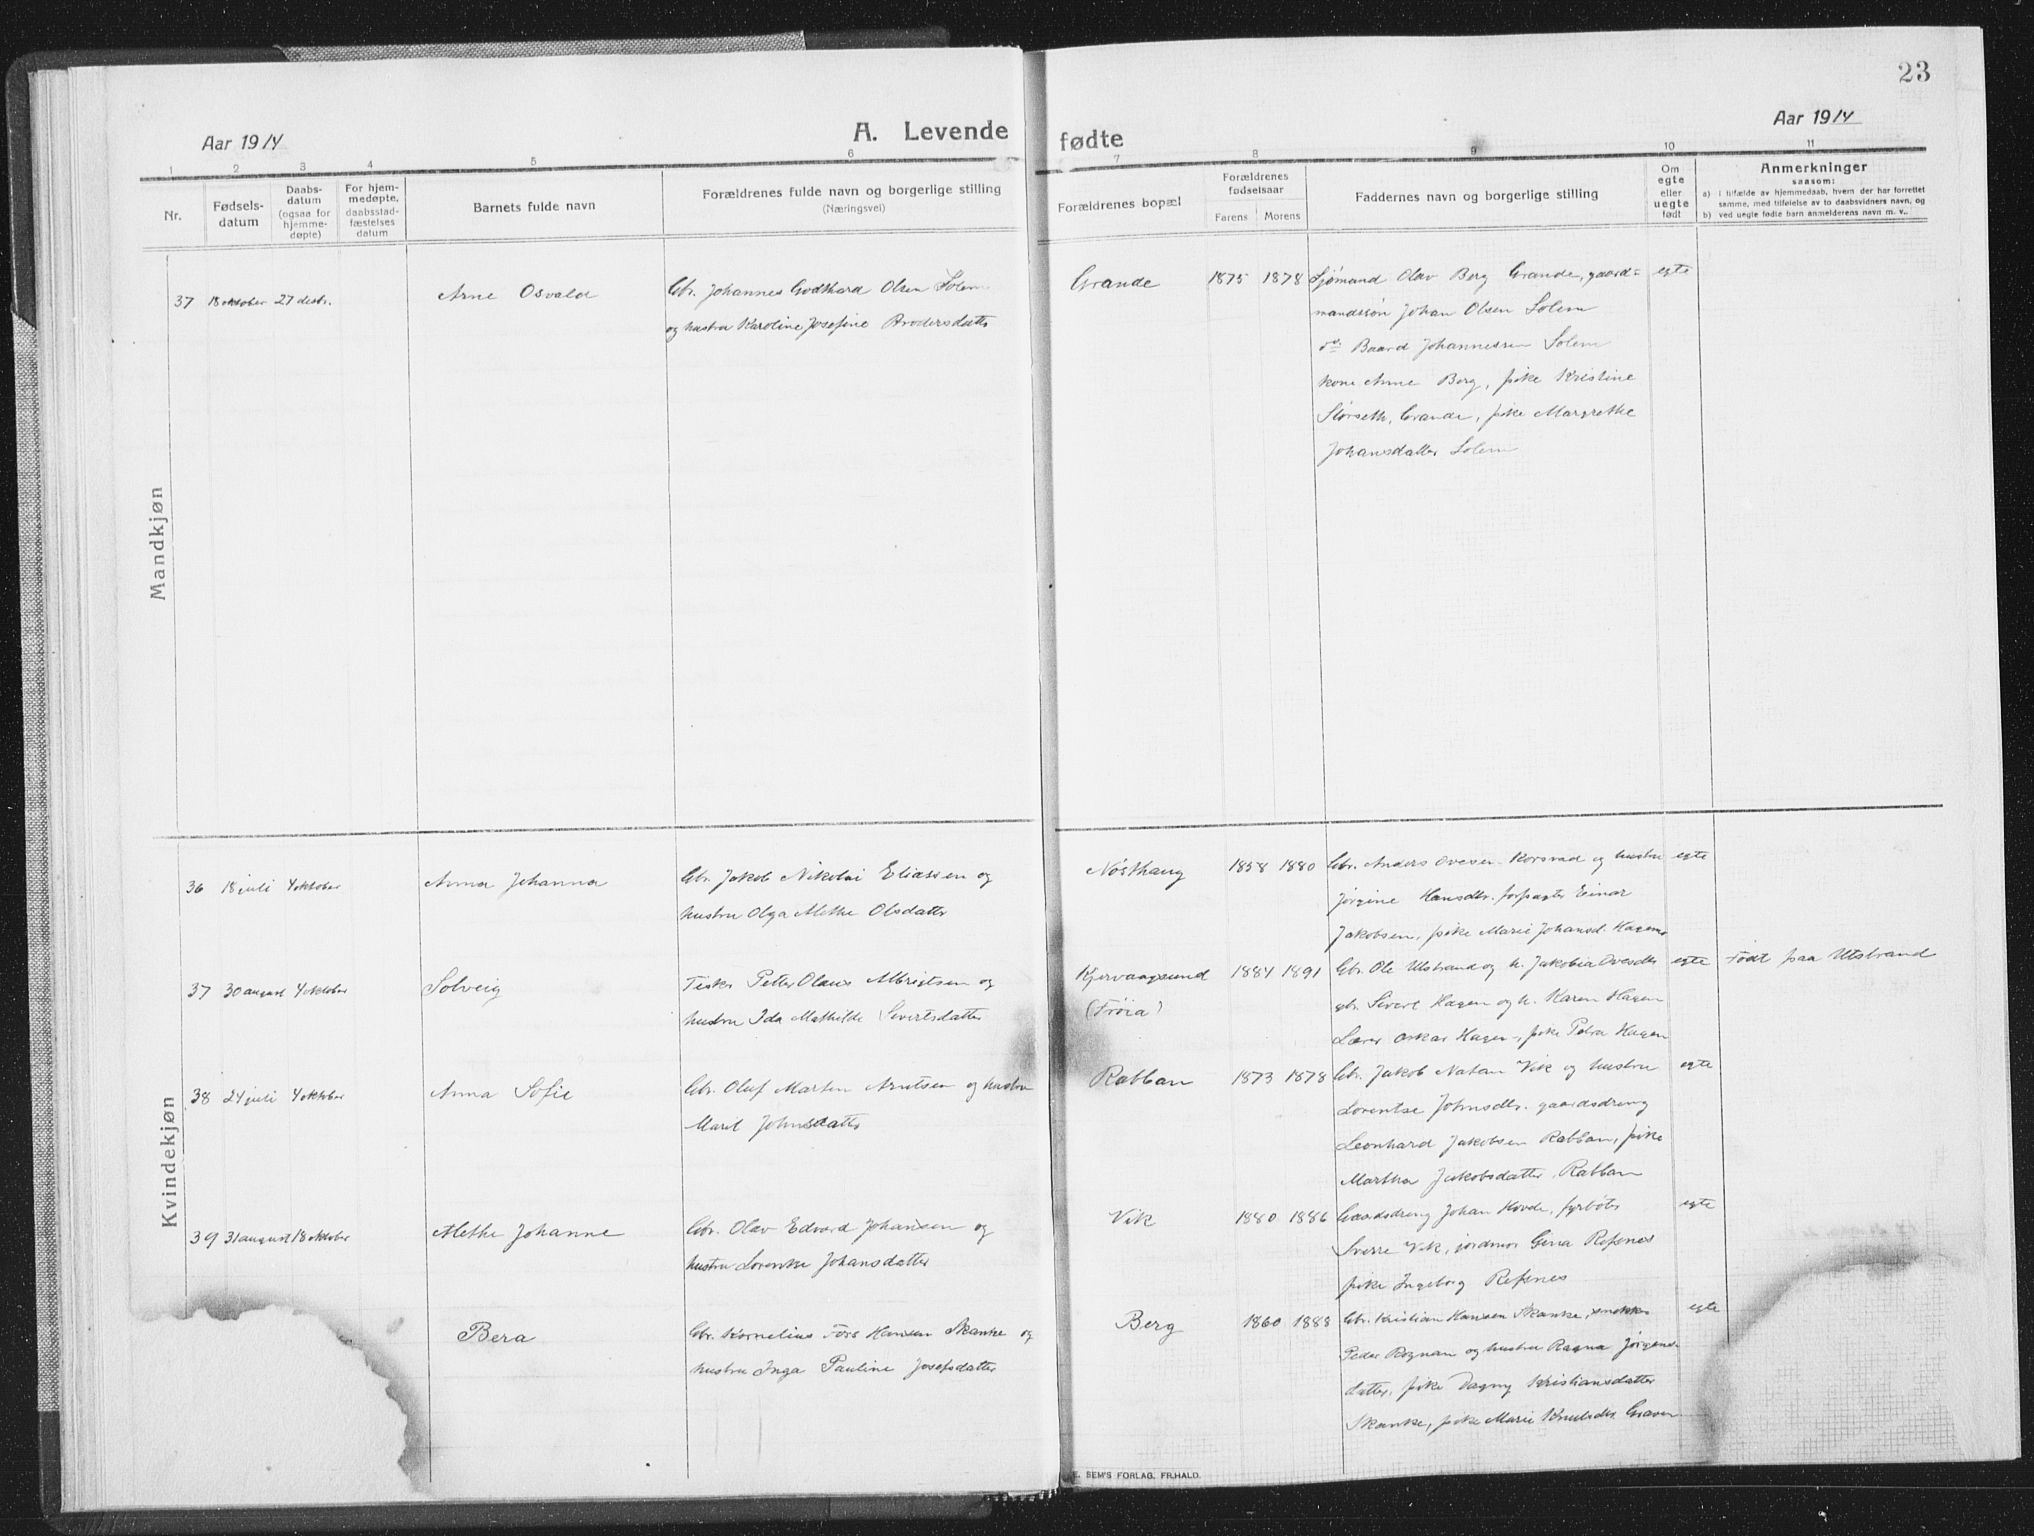 23
Aar 1914
A. Levende fødte
Aar 1914
1 2 3 4 5 6 7 8 9 10 11
Nr.
Fødsels-
datum
Daabs-
datum
(ogsaa for
hjemme-
døpte)
For hjem-
medøpte,
daabsstad-
fæstelses
datum
Barnets fulde navn
Forældrenes fulde navn og borgerlige stilling
(Næringsvei)
Forældrenes bopæl
Forældrenes
fødselsaar
Farens Morens
Faddernes navn og borgerlige stilling
Om
egte
eller
uegte
født
Anmerkninger
saasom:
a) i tilfælde av hjemmedaab, hvem der har forrettet
samme, med tilføielse av to daabsvidners navn, og
b) ved uegte fødte barn anmelderens navn m. v..
Mandkjøn
37 18 oktober 27 decbr.
Arne Osvald
Gbr. Johannes Godthard Olsen Solem
og hustru Karoline Josefine Brodersdatter
Grande
1875 1878
Sjømand Olav Berg Grande, gaard=
mandssøn Johan Olsen Solem
do Baard Johannessen Solem
kone Anne Berg, pike Kristine
Størseth, Grande, pike Margrethe
Johansdatter Solem
egte
Kvindekjøn
36 18 juli 4 oktober
Anna Johanna
Gbr. Jakob Nikolai Eliassen og
hustru Olga Methe Olsdatter
Nøsthaug
1858 1880
Gbr. Anders Ovesen Korsvad og hustru
Jørgine Hansdtr. forpagter Einar
Jakobsen, pike Marie Johansd. Hagen
egte
37 30 august 4 oktober
Solveig
Fisker Petter Olaus Albrigtsen og
hustru Ida Mathilde Sivertsdatter
Kjervaagsund
(Frøia)
1884 1891
Gbr. Ole Utstrand og h. Jakobia Ovesdtr
gbr. Sivert Hagen og h. Karen Hagen
Lærer Oskar Hagen, pike Petra Hagen
egte
Født paa Utstrand
38 24 juli 4 oktober
Anna Sofie
Gbr. Oluf Martin Arntsen og hustru
Marit Johnsdatter
Rabban
1873 1878
Gbr. Jakob Natan Vik og hustru
Lorentse Johnsdtr. gaardsdreng
Leonhard Jakobsen Rabban, pike
Martha Jakobsdatter Rabban
egte
39 31 august 18 oktober
Methe Johanne
Gbr. Olav Edvard Johansen og
hustru Lorentse Johansdatter
Vik
1880 1886
Gaardsdreng Johan Hovde, fyrbøter
Sverre Vik, jordmor Gina Refsnes
pike Ingeborg Refsnes
egte
Bera
Gbr. Kornelius Fors Hansen Skanke og
hustru Inga Pauline Josefsdatter
Berg
1860 1888
Gbr. Kristian Hansen Skanke, snekker
Peder Rognan og hustru Ragna Jørgens-
datter, pike Dagny Kristiansdatter
Skanke, pike Marie Knutsdtr. Graven
egte
E. SEM'S FORLAG, FR.HALD.